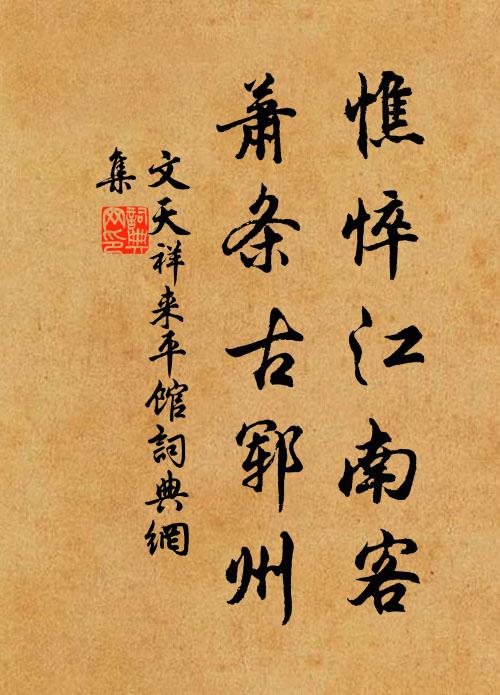 憔悴江南客
萧条古郓州
文天祥来平馆詞典網
集
詞典
网印